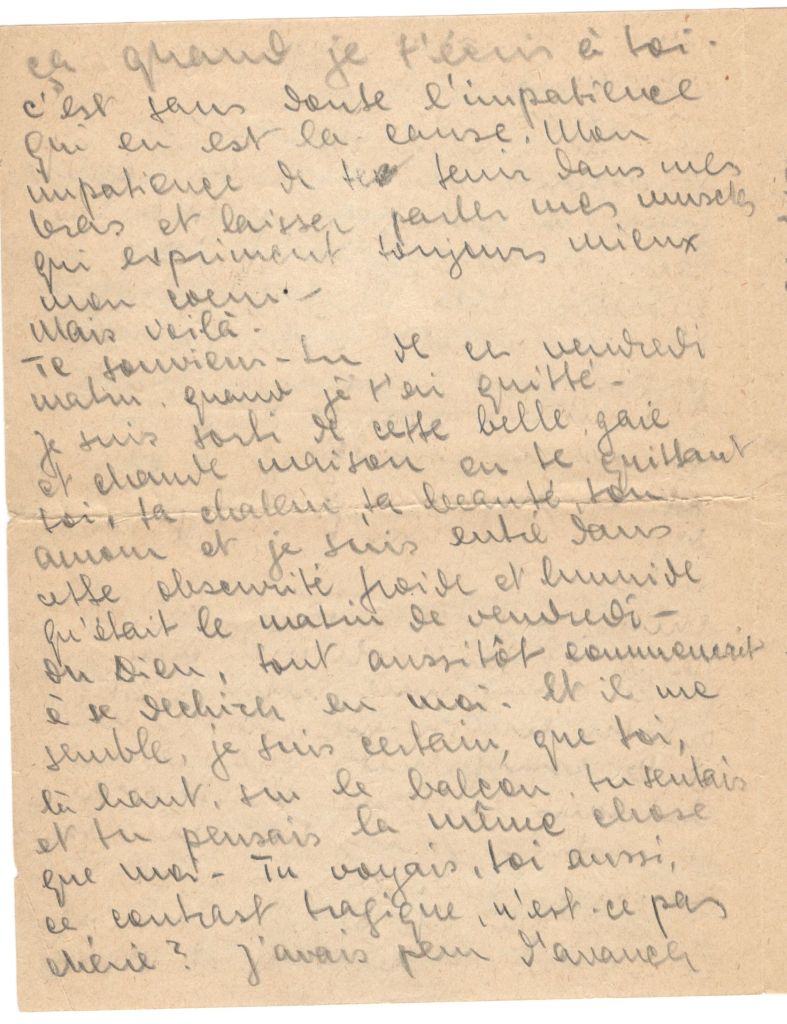 ça quand je t'écris à toi.
c'est sans doute l'impatience
qui en est la cause. Mon
impatience de te tenir dans mes
bras et laisser parler mes muscles
qui expriment toujours mieux
mon coeur.—
Mais voilà.
Te souviens-tu de ce vendredi
matin. quand je t'ai quitté—
je suis sorti de cette belle, gaie
et chaude maison en te quittant
toi, ta chaleur, ta beauté, ton
amour et je suis entré dans
cette obscurité froide et humide
qu'était le matin de vendredi—
Oh Dieu, tout aussitôt commencait
à se dechirer en moi. Et il me
semble, je suis certain, que toi,
là haut, sur le balcon, tu sentais
et tu pensais la même chose
que moi— Tu voyais, toi aussi,
ce contrast tragique, n'est-ce pas
chérie? J'avais peur d'avancer